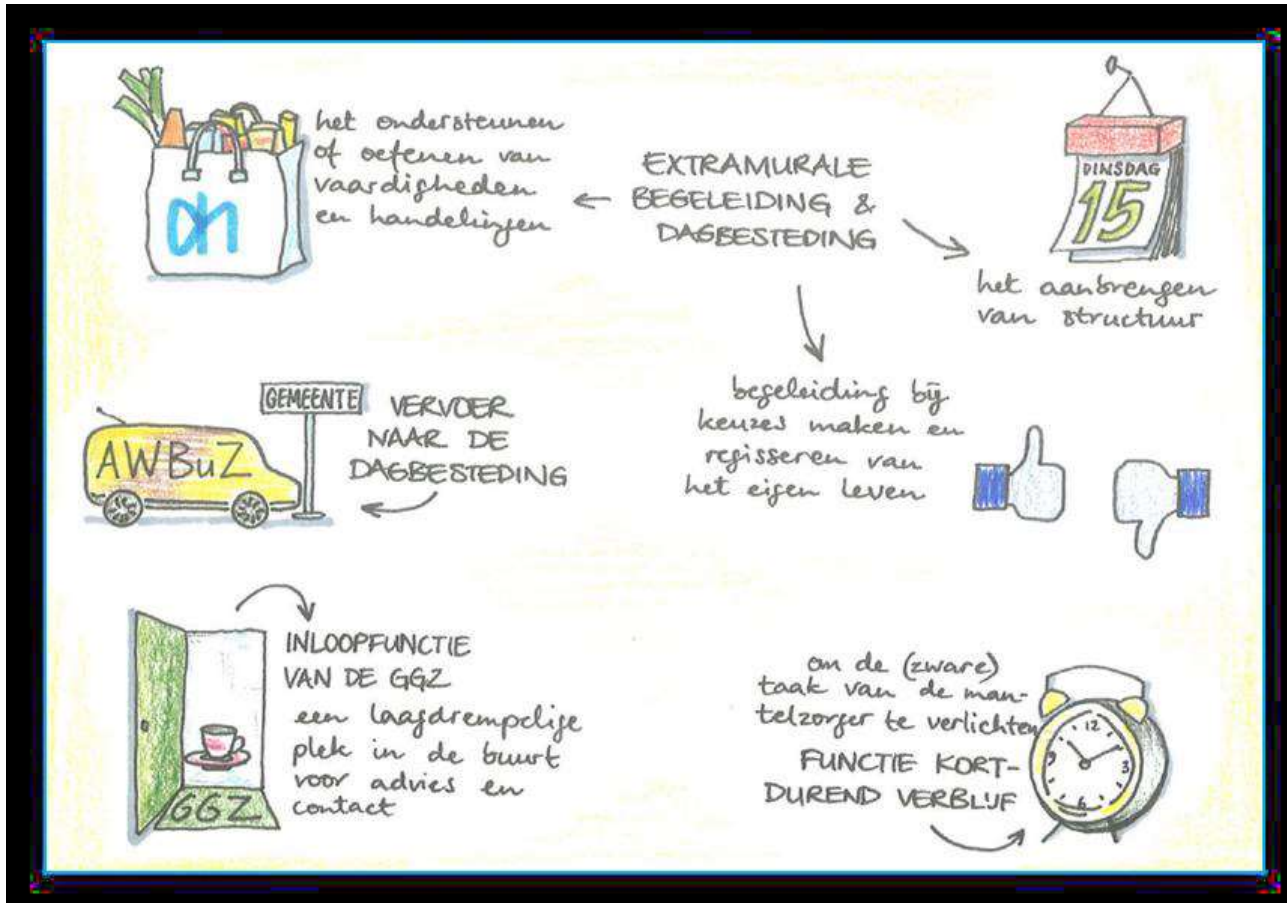 het ondersteunen
of oefenen van
vaardigheden
en handelingen
EXTRAMURALE
BEGELEIDING &
DAGBESTEDING
DINSDAG
15
het aanbrengen
van structuur
begeleiding bij
keuzes maken en
regisseren van
het eigen leven
AWBuZ
GEMEENTE
VERVOER
NAAR DE
DAGBESTEDING
INLOOPFUNCTIE
VAN DE GGZ
een laagdrempelige
plek in de buurt
voor advies en
contact
GGZ
om de (zware)
taak van de man-
telzorger te verlichten
FUNCTIE KORT-
DUREND VERBLIJF
12
3
6
9